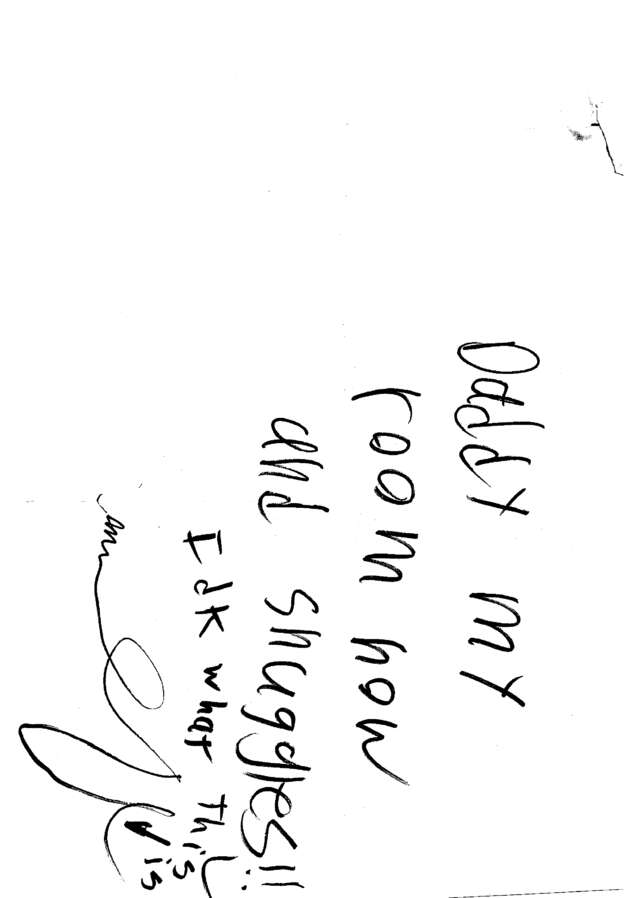 Daddy my
room now
and snuggles!!
Idk what This
is